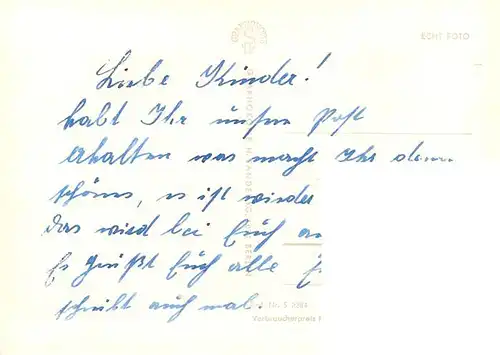 ECHT FOTO
Liebe Kinder!
habt Ihr unsere Post
erhalten was macht Ihr denn
schönes, es ist wieder
das wird bei Euch
Es grüßt Euch alle
schreibt auch mal.
Nr. S
Verbraucherpreis